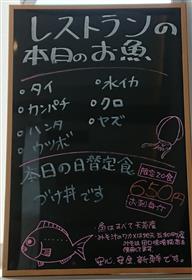 レストランの
本日のお魚
・タイ ・水イカ
・カンパチ ・クロ
・ハンタ ・ヤズ
・ウツボ
本日の日替定食
づけ丼です
限定20食
650円
お刺身付
魚はすべて天草産
安心、安全、新鮮です。